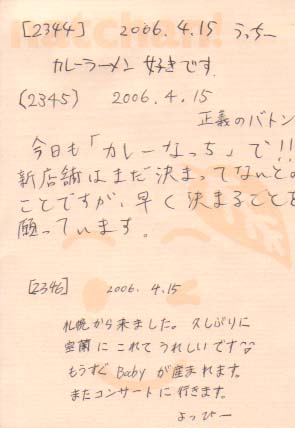 natchan!
[2344] 2006.4.15 うっちー
カレーラーメン 好きです
(2345) 2006.4.15
正義のバトン
今日も「カレーなっち」で!!
新店舗はまだ決まってないとの
ことですが、早く決まることを
願っています。
[2346] 2006.4.15
札幌から来ました。久しぶりに
室蘭にこれてうれしいです
もうすぐBabyが産まれます。
またコンサートに行きます。
よっぴー